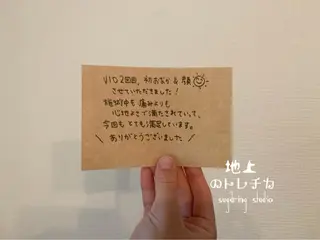 VIO 2回目、初おなか & 顔
させていただきました!
施術中も痛みよりも
心地よさで満たされていて、
今回もとても満足しています。
\ ありがとうございました /
地上
のトレチカ
sugaring studio